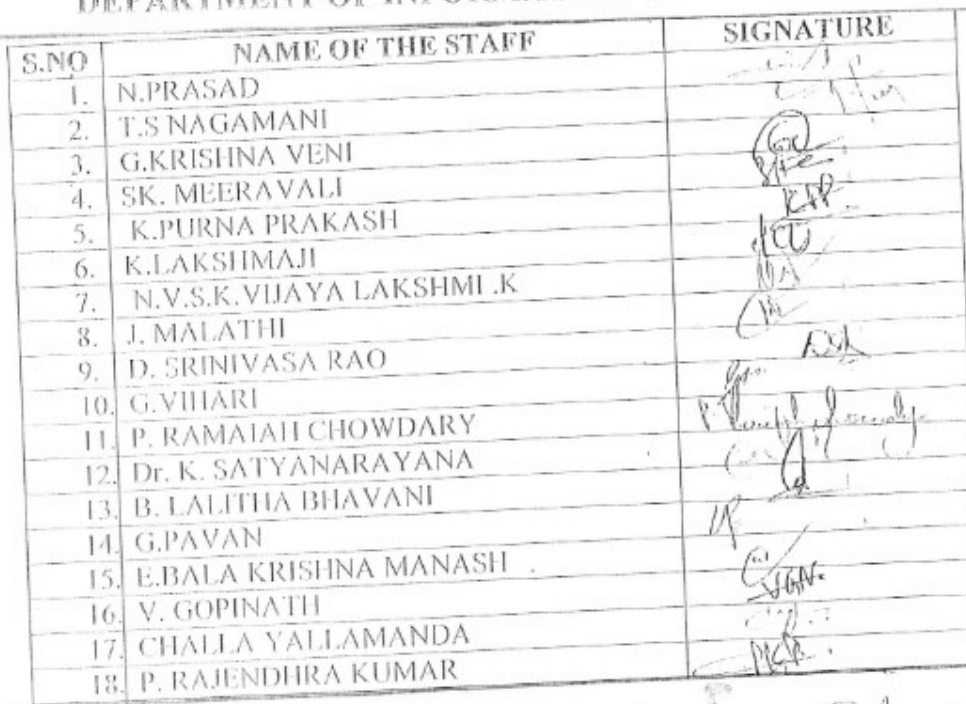 DEPARTMENT OF
S.NO NAME OF THE STAFF SIGNATURE
1. N.PRASAD
2. T.S NAGAMANI
3. G.KRISHNA VENI
4. SK. MEERAVALI
5. K.PURNA PRAKASH KPP.
6. K.LAKSHMAJI
7. N.V.S.K.VIJAYA LAKSHMI .K
8. J. MALATHI
9. D. SRINIVASA RAO
10. G.VIHARI
11. P. RAMAIAH CHOWDARY
12. Dr. K. SATYANARAYANA
13. B. LALITHA BHAVANI
14. G.PAVAN
15. E.BALA KRISHNA MANASH
16. V. GOPINATH VGN.
17. CHALLA YALLAMANDA
18. P. RAJENDHRA KUMAR